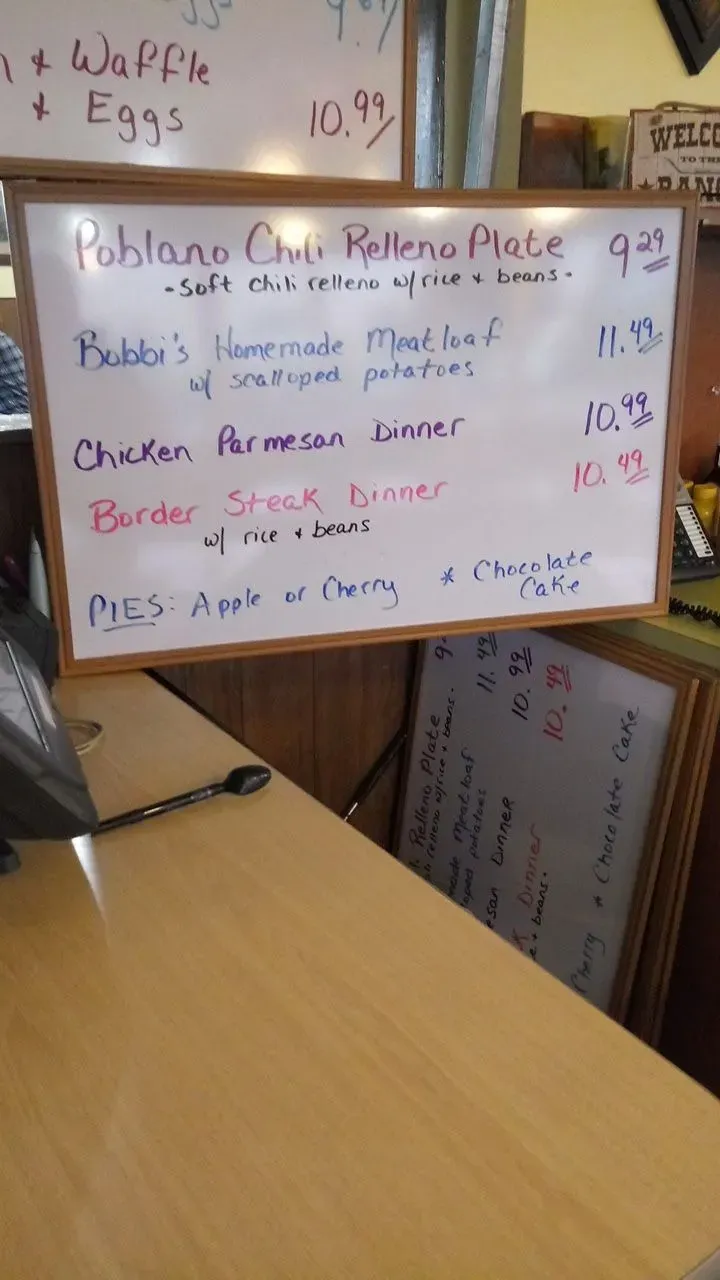 & Waffle
& Eggs 10.99
WELCO
TO THE
Poblano Chili Relleno Plate 9 29
-Soft chili relleno w/ rice & beans-
Bobbi's Homemade Meatloaf 11.49
w/ scalloped potatoes
Chicken Parmesan Dinner 10.99
Border Steak Dinner 10.49
w/ rice & beans
PIES: Apple or Cherry * Chocolate
Cake
Relleno Plate 9
relleno w/ rice & beans.
made Meatloaf 11.49
loped potatoes
esan Dinner 10.99
K Dinner 10.49
e & beans.
Cherry * Chocolate Cake